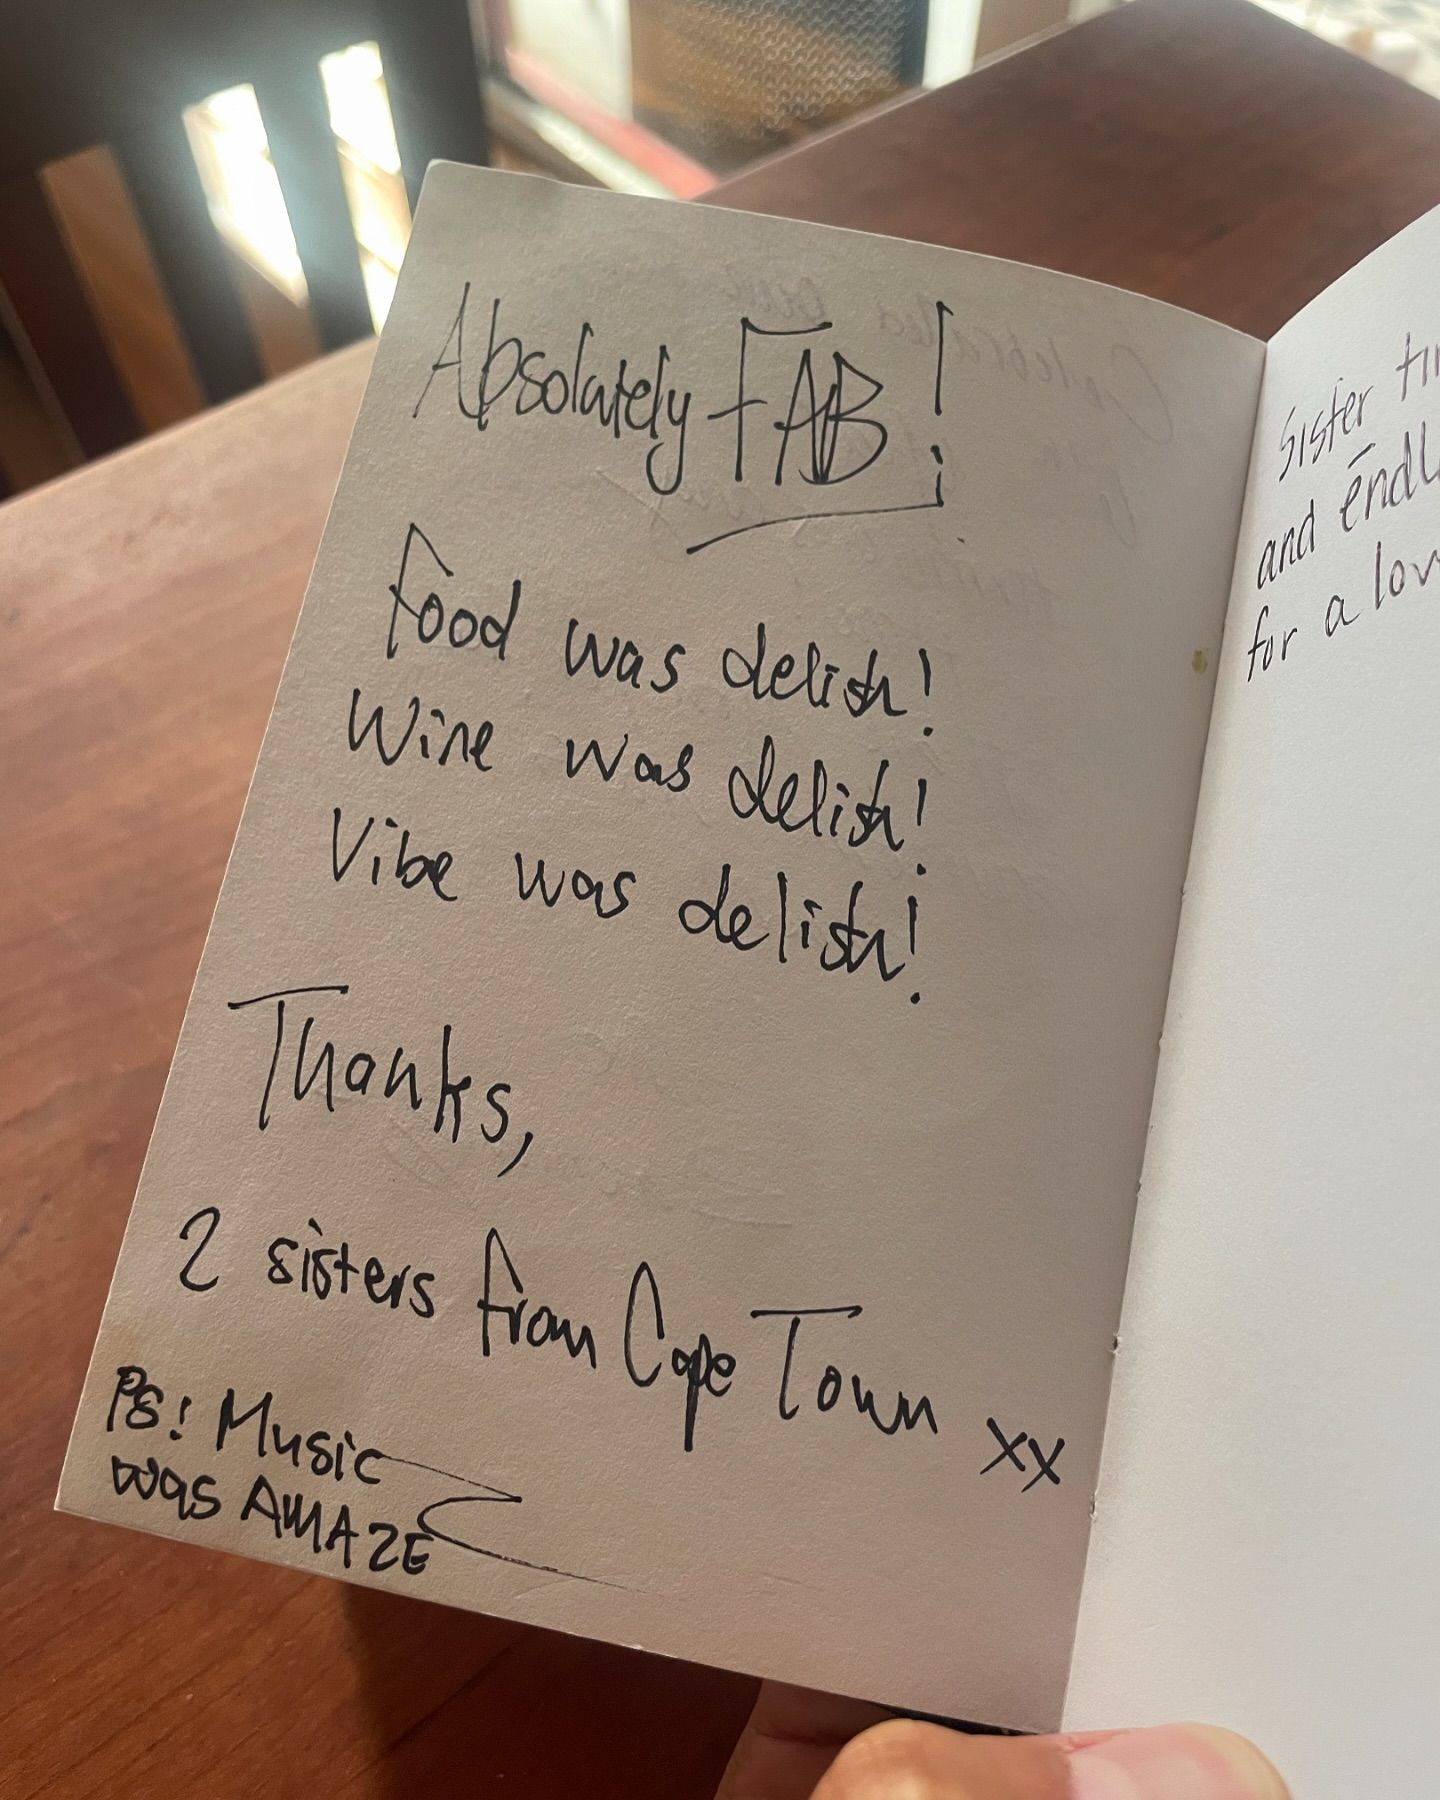 Absolutely FAB!
Food was delish!
Wine was delish!
Vibe was delish!
Thanks,
2 sisters from Cape Town xx
PS! Music
was AMAZE
Sister
and
for a